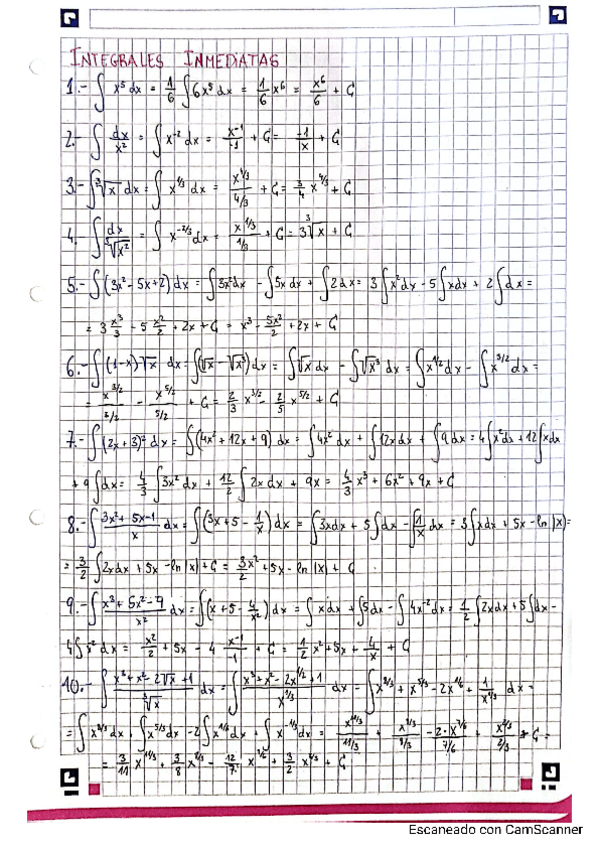 INTEGRALES INMEDIATAS
1.- ∫ x⁵ dx = 1/6 ∫ 6x⁵ dx = 1/6 x⁶ = x⁶/6 + C
2.- ∫ dx/x² = ∫ x⁻² dx = x⁻¹/-1 + C = -1/x + C
3.- ∫ ∛x dx = ∫ x^(1/3) dx = x^(4/3)/(4/3) + C = 3/4 x^(4/3) + C
4. ∫ dx/∛x² = ∫ x^(-2/3) dx = x^(1/3)/(1/3) + C = 3 ∛x + C
5.- ∫ (3x² - 5x + 2) dx = ∫ 3x² dx - ∫ 5x dx + ∫ 2 dx = 3 ∫ x² dx - 5 ∫ x dx + 2 ∫ dx =
= 3 x³/3 - 5 x²/2 + 2x + C = x³ - 5x²/2 + 2x + C
6.- ∫ (1-x) √x dx = ∫ (√x - √x³) dx = ∫ √x dx - ∫ √x³ dx = ∫ x^(1/2) dx - ∫ x^(3/2) dx =
= x^(3/2)/(3/2) - x^(5/2)/(5/2) + C = 2/3 x^(3/2) - 2/5 x^(5/2) + C
7.- ∫ (2x + 3)² dx = ∫ (4x² + 12x + 9) dx = ∫ 4x² dx + ∫ 12x dx + ∫ 9 dx = 4 ∫ x² dx + 12 ∫ x dx
+ 9 ∫ dx = 4/3 ∫ 3x² dx + 12/2 ∫ 2x dx + 9x = 4/3 x³ + 6x² + 9x + C
8.- ∫ (3x² + 5x - 1)/x dx = ∫ (3x + 5 - 1/x) dx = ∫ 3x dx + 5 ∫ dx - ∫ 1/x dx = 3 ∫ x dx + 5x - ln |x| =
= 3/2 ∫ 2x dx + 5x - ln |x| + C = 3x²/2 + 5x - ln |x| + C
9.- ∫ (x³ + 5x² - 4)/x² dx = ∫ (x + 5 - 4/x²) dx = ∫ x dx + ∫ 5 dx - ∫ 4x⁻² dx = 1/2 ∫ 2x dx + 5 ∫ dx -
4 ∫ x⁻² dx = x²/2 + 5x - 4 x⁻¹/-1 + C = 1/2 x² + 5x + 4/x + C
10.- ∫ (x³ + x² - 2√x + 1)/∛x dx = ∫ (x³ + x² - 2x^(1/2) + 1)/x^(1/3) dx = ∫ x^(8/3) + x^(5/3) - 2x^(1/6) + 1/x^(1/3) dx =
= ∫ x^(8/3) dx + ∫ x^(5/3) dx - 2 ∫ x^(1/6) dx + ∫ x^(-1/3) dx = x^(11/3)/(11/3) + x^(8/3)/(8/3) - 2·x^(7/6)/(7/6) + x^(2/3)/(2/3) + C =
= 3/11 x^(11/3) + 3/8 x^(8/3) - 12/7 x^(7/6) + 3/2 x^(2/3) + C
Escaneado con CamScanner